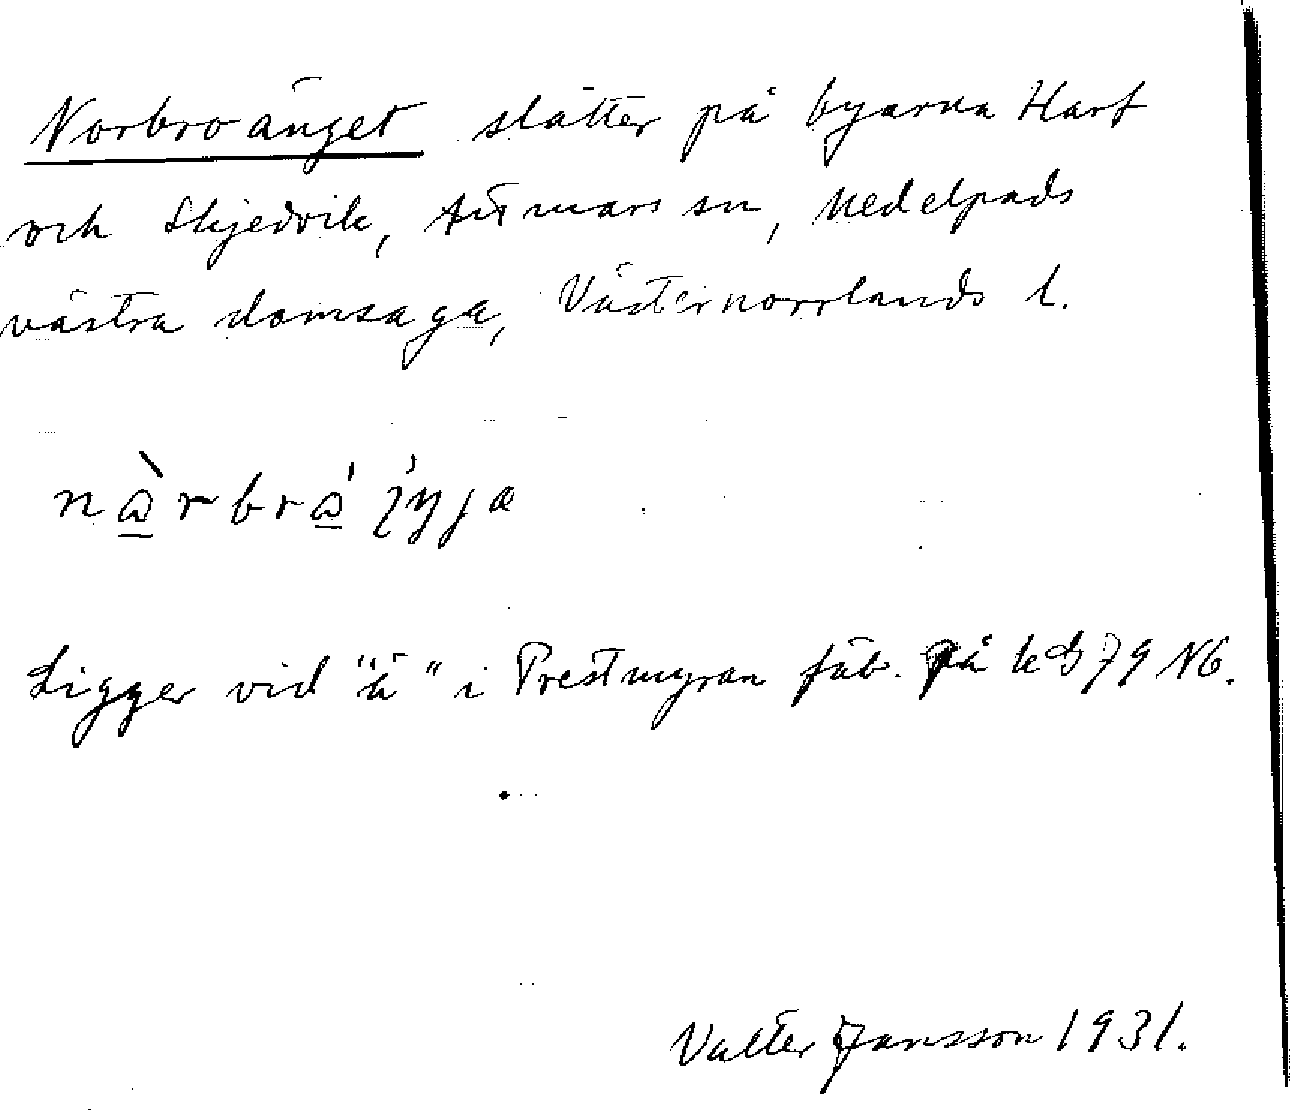 Norbroänget slåtter på byarna Harf
och Skjedvik, Attmars sn, Medelpads
västra domsaga, Västernorrlands l.
Ligger vid "ä" i Prestmyran fäb. På kbl 79 NB.
Valter Jansson 1931.